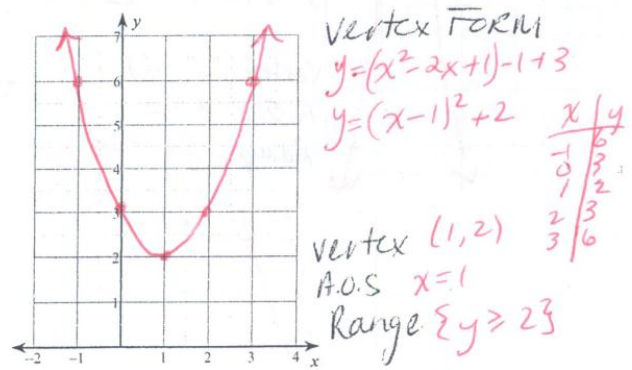 y
7
6
5
4
3
2
1
-2 -1 0 1 2 3 4 x
Vertex FORM
y=(x²-2x+1)-1+3
y=(x-1)²+2
x | y
-1 | 6
0 | 3
1 | 2
2 | 3
3 | 6
Vertex (1,2)
A.O.S x=1
Range {y ≥ 2}